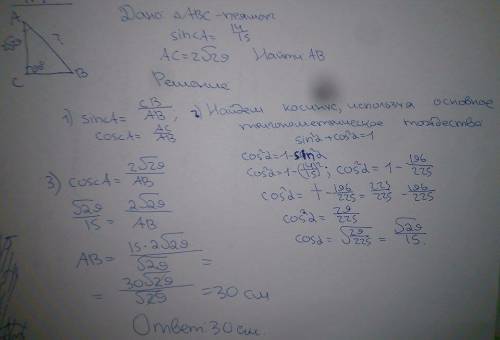 Дано: △ABC-прямоуг
sin∠A = 14/15
AC=2√29 Найти AB
A
?
C 90° B
Решение
1) sin∠A = CB/AB,
cos∠A = AC/AB
2) Найдем косинус, используя основное
тригонометрическое тождество
sin²α+cos²α=1
cos²α=1-sin²α
cos²α=1-(14/15)²; cos²α = 1 - 196/225
cos²α = 1 - 196/225 = 225/225 - 196/225
cos²α = 29/225
cosα = √29/225 = √29/15.
3) cos∠A = 2√29/AB
√29/15 = 2√29/AB
AB = 15·2√29/√29 =
= 30√29/√29 = 30 см
Ответ: 30 см.